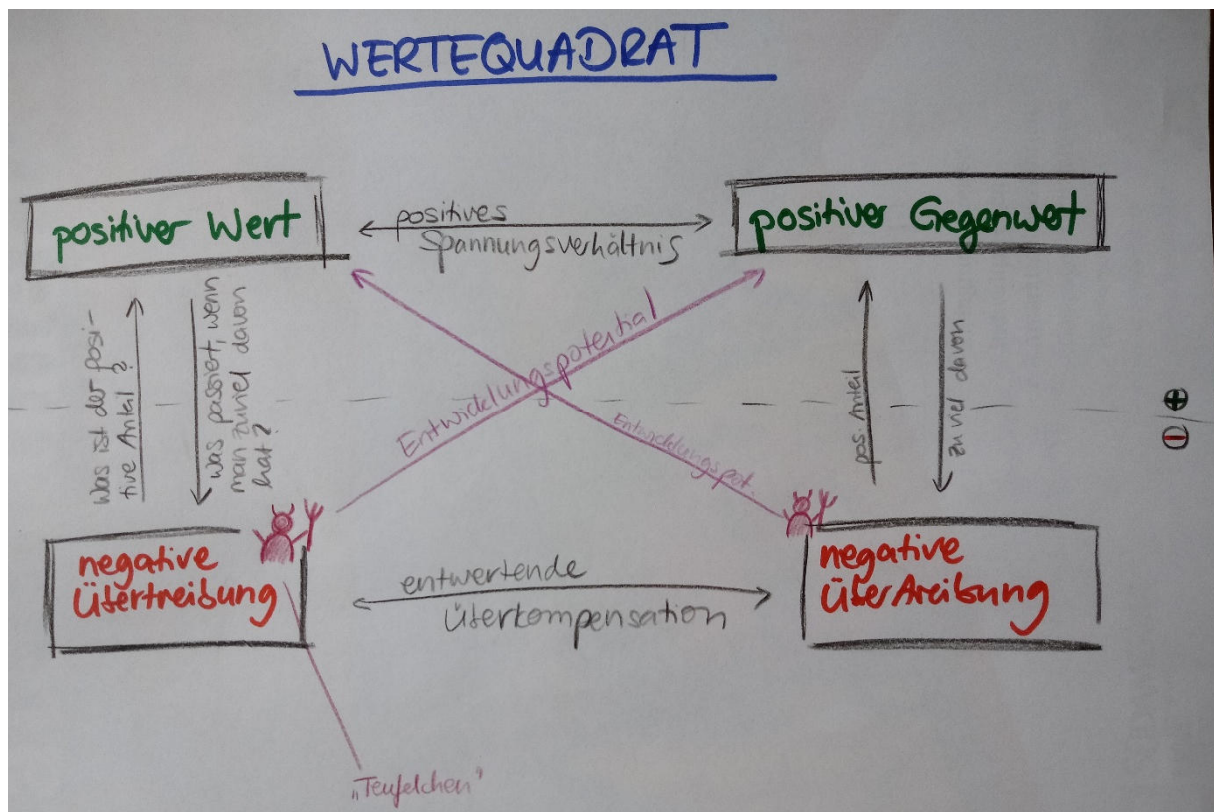 WERTEQUADRAT
positiver Wert
positives
Spannungsverhältnis
positiver Gegenwert
Was ist der posi-
tive Anteil?
was passiert, wenn
man zuviel davon
hat?
Entwicklungspotential
Entwicklungspot.
pos. Anteil
zu viel davon
⊖/⊕
negative
Übertreibung
entwertende
Überkompensation
negative
Übertreibung
„Teufelchen"